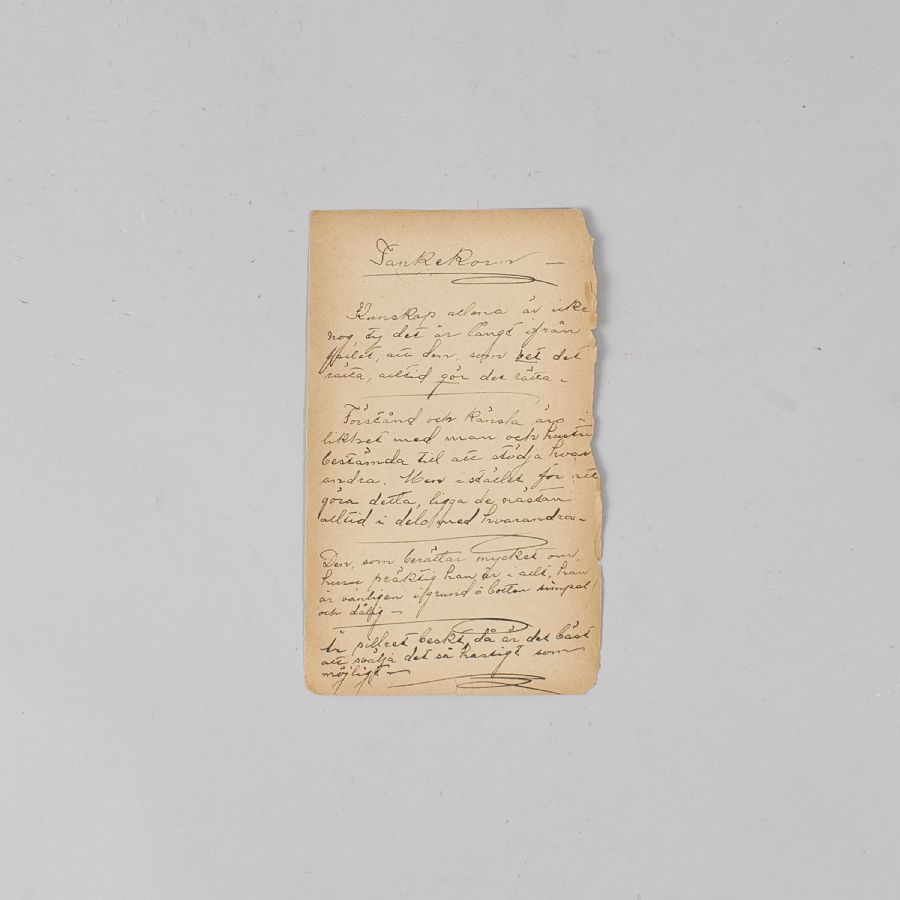 Tankekorn —
Kunskap allena är icke
nog, ty det är långt ifrån
gifvet, att den, som vet det
rätta, alltid gör det rätta -
Förstånd och känsla äro
likhet med man och hustru
bestämda til att stödja hvar
andra. Men i stället för att
göra detta, ligga de nästan
alltid i delo med hvarandra -
Den, som berättar mycket om
huru präktig han är i allt, han
är vanligen i grund å botten simpel
och dålig —
Är pillret beskt, då är det bäst
att svälja det så hastigt som
möjligt —